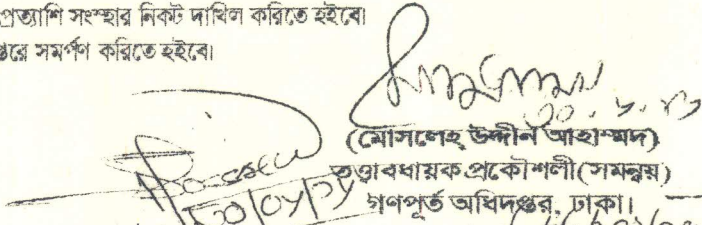 প্রত্যাশি সংস্হার নিকট দাখিল করিতে হইবে।
সমর্পণ করিতে হইবে।
(মোসলেহ্ উদ্দীন আহাম্মদ)
তত্ত্বাবধায়ক প্রকৌশলী(সমন্বয়)
গণপূর্ত অধিদপ্তর, ঢাকা।